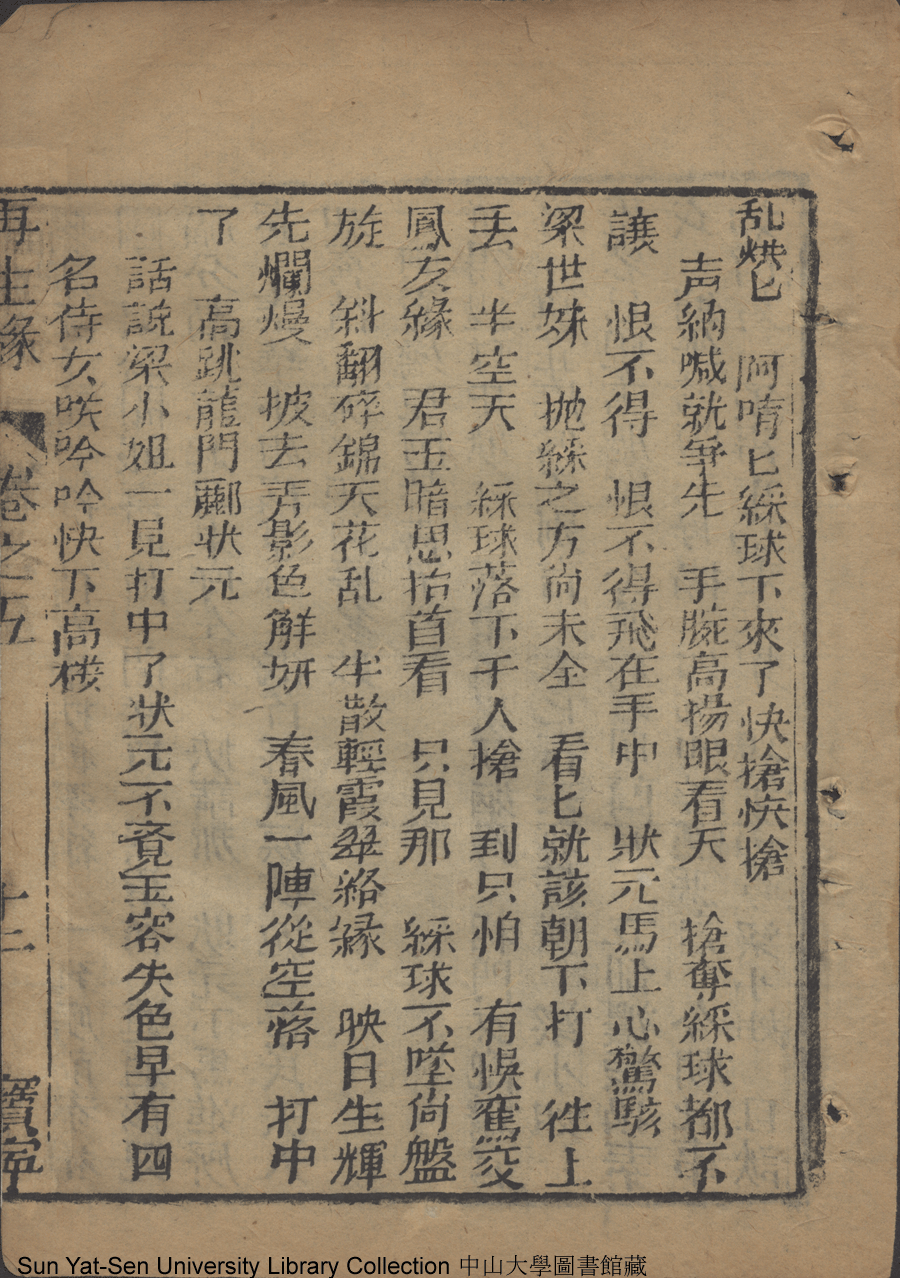 乱烘匕　阿唷匕綵球下來了快搶快搶
声納喊就爭先　手腕高揚眼看天　搶奪綵球都不
讓　恨不得　恨不得飛在手中　狀元馬上心驚駭
梁世妹　抛綵之方尙未全　看匕就該朝下打　徃上
丢　半空天　綵球落下千人搶　到只怕　有悞鸞交
鳳友緣　君玉暗思抬首看　只見那　綵球不墜尙盤
旋　斜翻碎錦天花乱　半散輕霞翠絡緣　映日生輝
先爛熳　披去弄影色觧妍　春風一陣從空落　打中
了　高跳龍門酈状元
話説梁小姐一見打中了狀元不覔玉容失色早有四
名侍女咲吟吟快下高楼
再生緣　卷之五　十二　寳寧
Sun Yat-Sen University Library Collection 中山大學圖書館藏